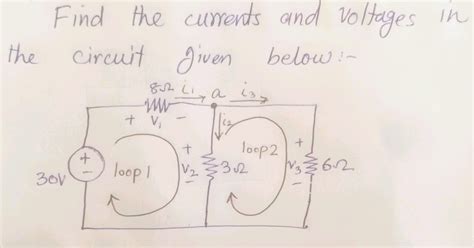 Find the currents and voltages in
the circuit given below:-
8Ω i₁ a i₃
+ V₁ -
i₂
30V + - loop1 + V₂ - 3Ω loop2 + V₃ - 6Ω